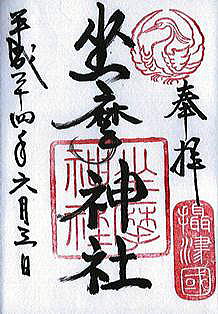 奉拝
攝津國
坐摩神社
坐摩神社
平成二十四年六月三日